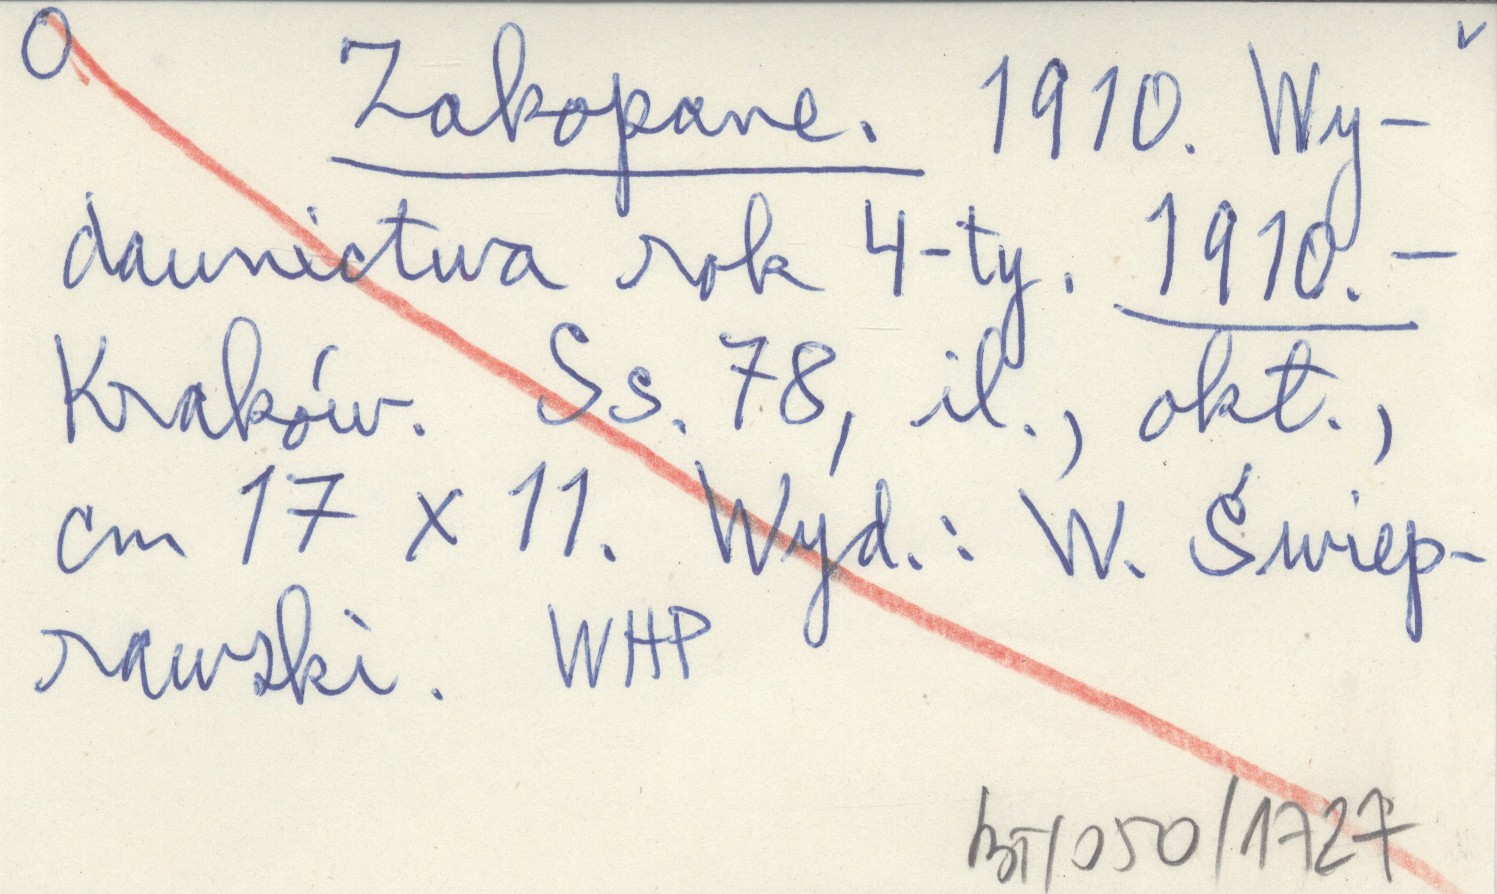 O Zakopane. 1910. Wy-
dawnictwa rok 4-ty. 1910. -
Kraków. Ss. 78, il., okt.,
cm 17 x 11. Wyd.: W. Świep-
rawski. WHP
BT/050/1727